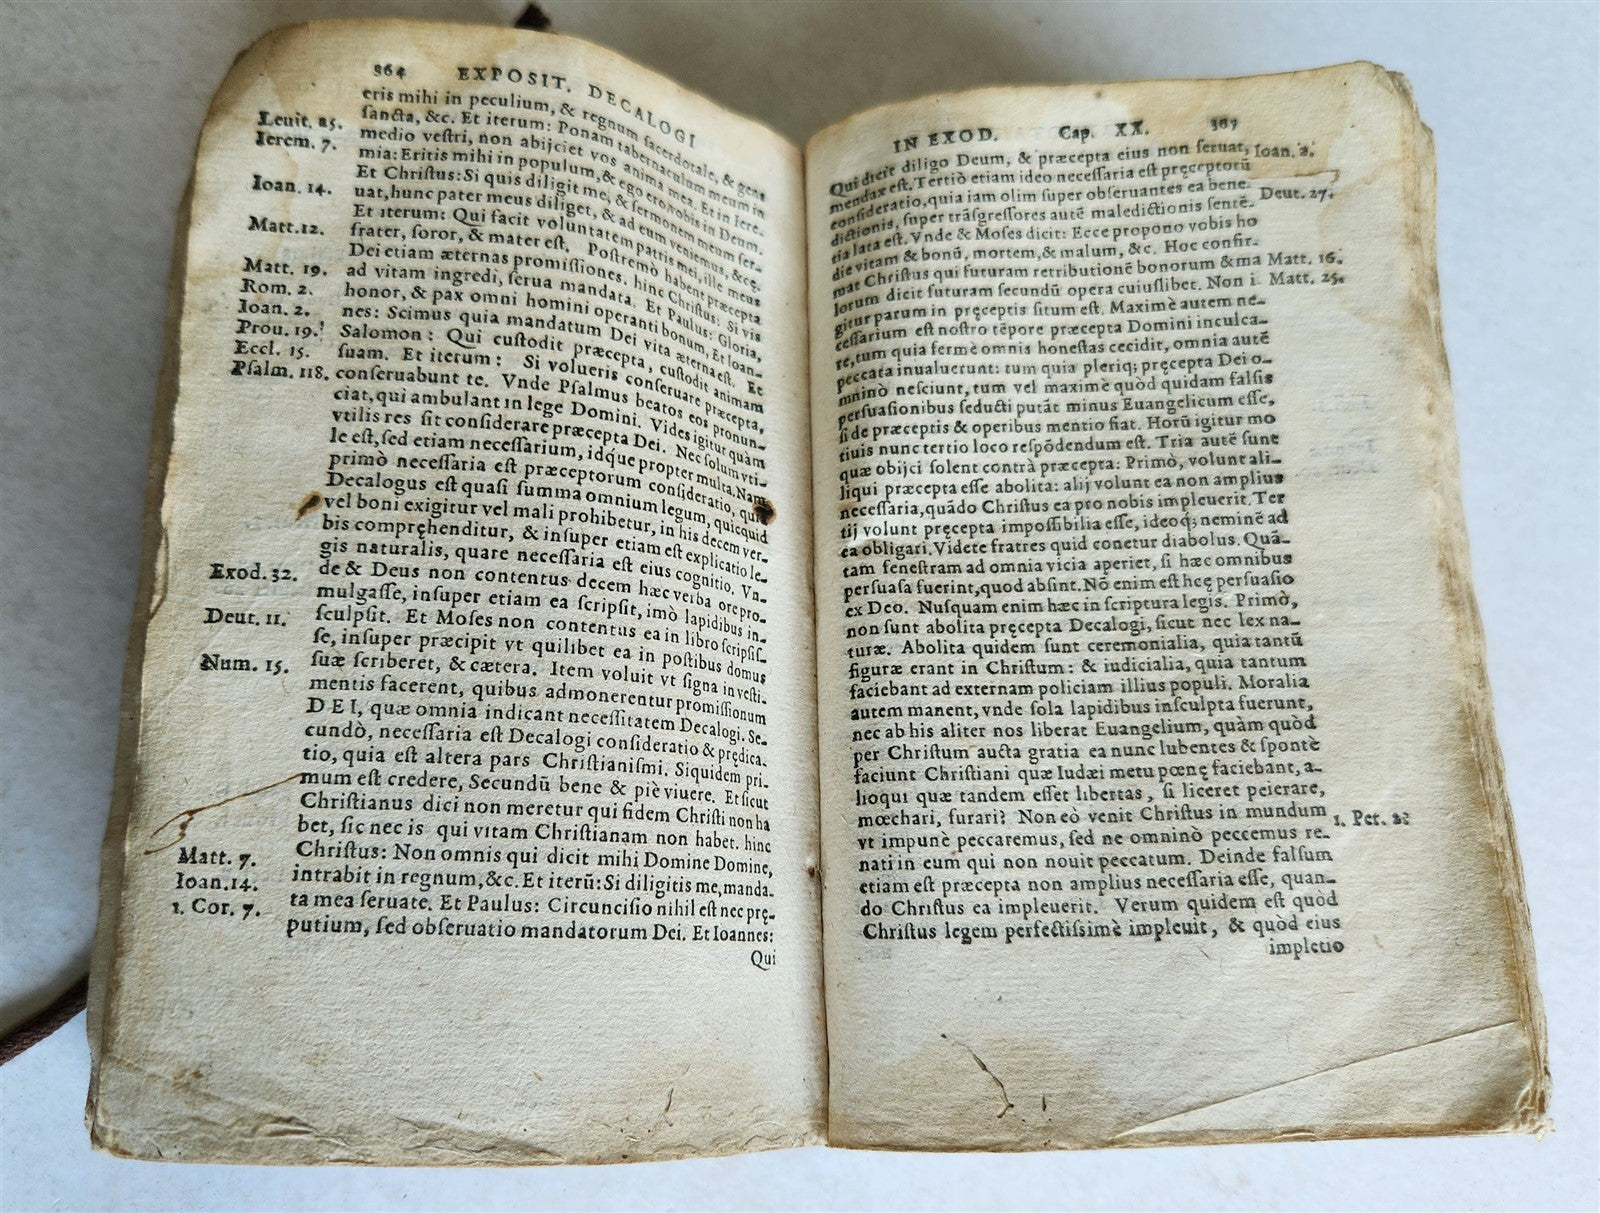 364 EXPOSIT. DECALOGI
eris mihi in peculium, & regnum sacerdotale, & gens
sancta, &c. Et iterum: Ponam tabernaculum meum in
Leuit. 25.
medio vestri, non abijciet vos anima mea. Et in Iere-
Ierem. 7.
mia: Eritis mihi in populum, & ego ero nobis in Deum.
Et Christus: Si quis diligit me, & sermonem meum ser-
Ioan. 14.
uat, hunc pater meus diliget, & ad eum veniemus, &c.
Et iterum: Qui facit voluntatem patris mei, ille meus
Matt. 12.
frater, soror, & mater est. Postremò habent præcepta
Dei etiam æternas promissiones. hinc Christus: Si vis
Matt. 19.
ad vitam ingredi, serua mandata. Et Paulus: Gloria,
Rom. 2.
honor, & pax omni homini operanti bonum, Et Ioan-
Ioan. 2.
nes: Scimus quia mandatum Dei vita æterna est. Et
Prou. 19.
Salomon: Qui custodit præcepta, custodit animam
Eccl. 15.
suam. Et iterum: Si volueris conseruare præcepta,
Psalm. 118.
conseruabunt te. Vnde Psalmus beatos eos pronun-
ciat, qui ambulant in lege Domini. Vides igitur quàm
vtilis res sit considerare præcepta Dei. Nec solum vti-
le est, sed etiam necessarium, idque propter multa. Nam
primò necessaria est præceptorum consideratio, quia
Decalogus est quasi summa omnium legum, quicquid
vel boni exigitur vel mali prohibetur, in his decem ver-
bis compręhenditur, & insuper etiam est explicatio le-
gis naturalis, quare necessaria est eius cognitio. Vn-
Exod. 32.
de & Deus non contentus decem hæc verba ore pro-
mulgasse, insuper etiam ea scripsit, imò lapidibus in-
Deut. 11.
sculpsit. Et Moses non contentus ea in libro scripsis-
se, insuper præcipit vt quilibet ea in postibus domus
Num. 15.
suæ scriberet, & cætera. Item voluit vt signa in vesti-
mentis facerent, quibus admonerentur promissionum
DEI, quæ omnia indicant necessitatem Decalogi. Se-
cundò, necessaria est Decalogi consideratio & prędica-
tio, quia est altera pars Christianismi. Siquidem pri-
mum est credere, Secundū bene & piè viuere. Et sicut
Christianus dici non meretur qui fidem Christi non ha
bet, sic nec is qui vitam Christianam non habet. hinc
Matt. 7.
Christus: Non omnis qui dicit mihi Domine Domine,
Ioan. 14.
intrabit in regnum, &c. Et iterū: Si diligitis me, manda-
1. Cor. 7.
ta mea seruate. Et Paulus: Circuncisio nihil est nec prę-
putium, sed obseruatio mandatorum Dei. Et Ioannes:
Qui
IN EXOD. Cap. XX. 365
Qui dicit diligo Deum, & præcepta eius non seruat,
Ioan. 2.
mendax est. Tertiò etiam ideo necessaria est pręceptorū
consideratio, quia iam olim super obseruantes ea bene-
Deut. 27.
dictionis, super trāsgressores autē maledictionis sentē-
tia lata est. Vnde & Moses dicit: Ecce propono vobis ho
die vitam & bonū, mortem, & malum, &c. Hoc confir-
mat Christus qui futuram retributionē bonorum & ma
Matt. 16.
lorum dicit futuram secundū opera cuiuslibet. Non i-
Matt. 25.
gitur parum in pręceptis situm est. Maximè autem ne-
cessarium est nostro tēpore præcepta Domini inculca-
re, tum quia fermè omnis honestas cecidit, omnia autē
peccata inualuerunt: tum quia pleriq; pręcepta Dei o-
mninò nesciunt, tum vel maximè quòd quidam falsis
persuasionibus seducti putāt minus Euangelicum esse,
si de præceptis & operibus mentio fiat. Horū igitur mo
tiuis nunc tertio loco respōdendum est. Tria autē sunt
quæ obijci solent contrà præcepta: Primò, volunt ali-
liqui præcepta esse abolita: alij volunt ea non amplius
necessaria, quādo Christus ea pro nobis impleuerit. Ter
tij volunt pręcepta impossibilia esse, ideoq; neminē ad
ea obligari. Videte fratres quid conetur diabolus. Quā-
tam fenestram ad omnia vicia aperiet, si hæc omnibus
persuasa fuerint, quod absint. Nō enim est hcę persuasio
ex Deo. Nusquam enim hæc in scriptura legis. Primò,
non sunt abolita pręcepta Decalogi, sicut nec lex na-
turæ. Abolita quidem sunt ceremonialia, quia tantū
figuræ erant in Christum: & iudicialia, quia tantum
faciebant ad externam policiam illius populi. Moralia
autem manent, vnde sola lapidibus insculpta fuerunt,
nec ab his aliter nos liberat Euangelium, quàm quòd
per Christum aucta gratia ea nunc lubentes & spontè
faciunt Christiani quæ Iudæi metu pœnę faciebant, a-
lioqui quæ tandem esset libertas, si liceret peierare,
mœchari, furari? Non eò venit Christus in mundum
1. Pet. 2
vt impunè peccaremus, sed ne omninò peccemus re-
nati in eum qui non nouit peccatum. Deinde falsum
etiam est præcepta non amplius necessaria esse, quan-
do Christus ea impleuerit. Verum quidem est quòd
Christus legem perfectissimè impleuit, & quòd eius
impletio